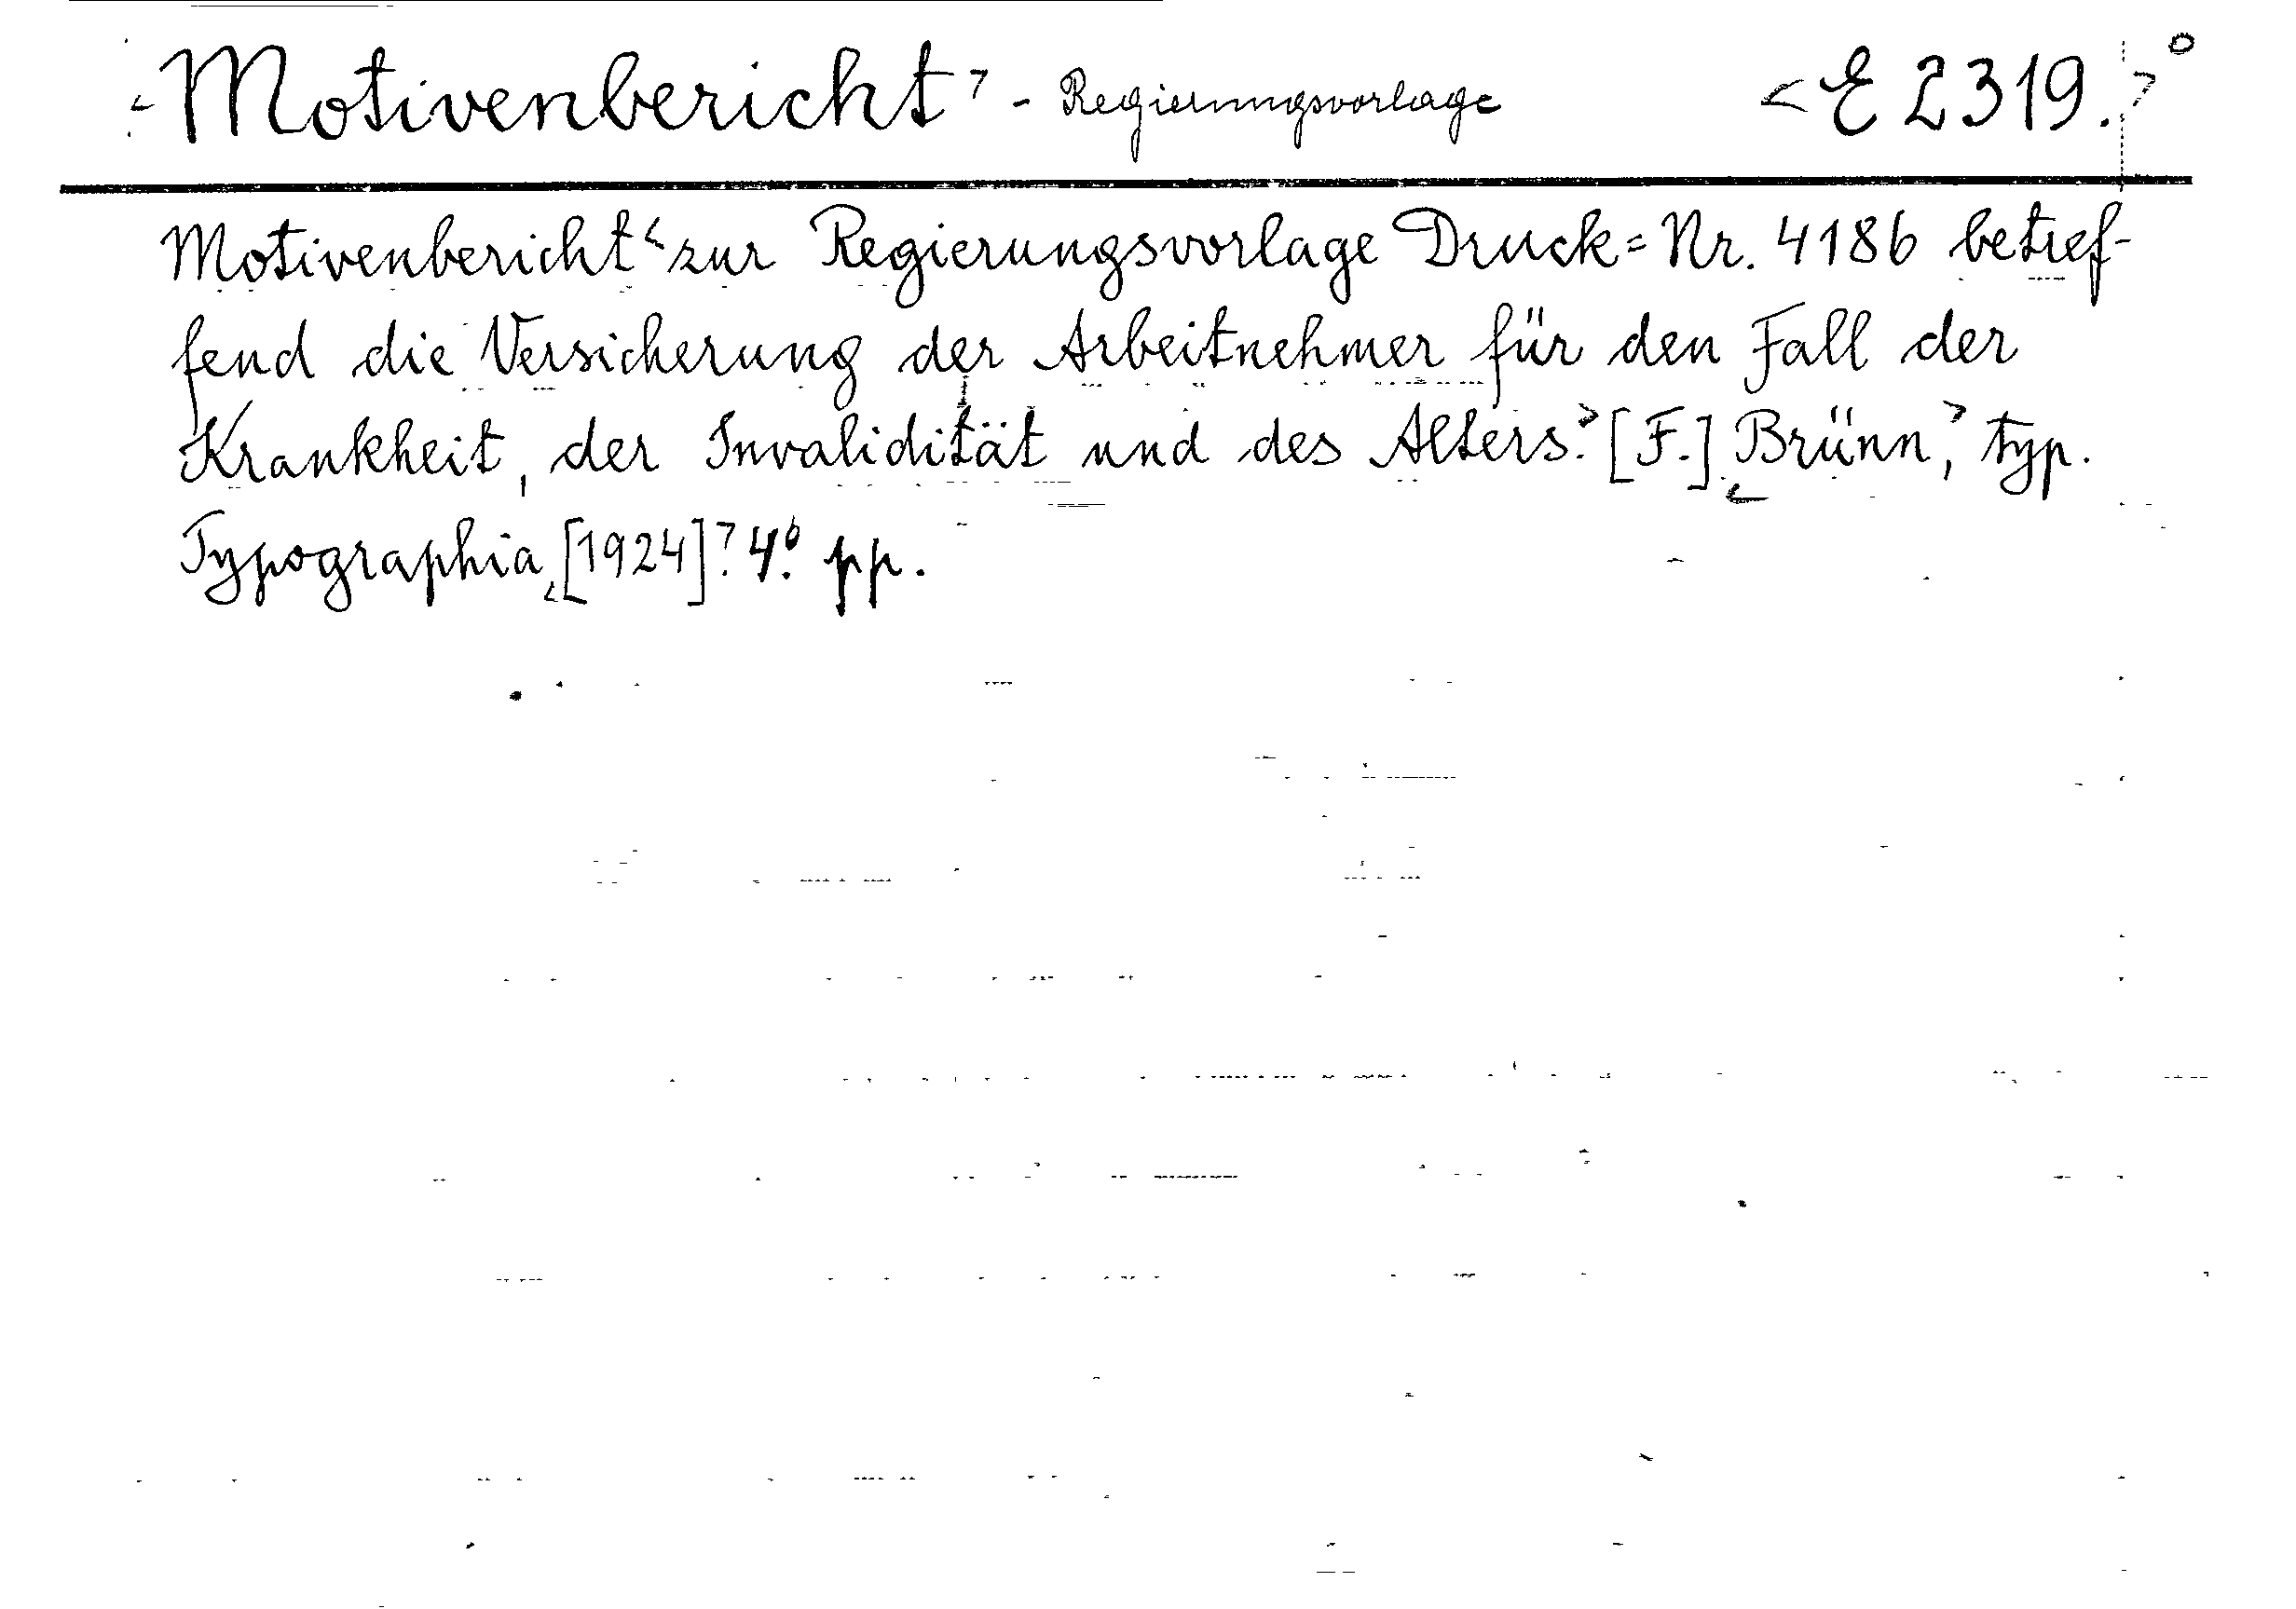 <Motivenbericht> - Regierungsvorlage <E 2319.> o
Motivenbericht < zur Regierungsvorlage Druck=Nr. 4186 betref-
fend die Versicherung der Arbeitnehmer für den Fall der
Krankheit, der Invalidität und des Alters.> [F.] <Brünn,> typ.
Typographia, <[1924].> 4° pp.